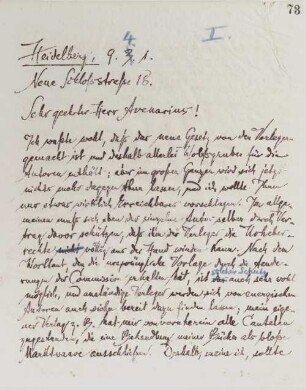 73
4.
I.
Heidelberg, 9. 3. 1.
Neue Schlossstrasse 1B.
Sehr geehrter Herr Avenarius!
Ich wusste wohl, dass das neue Gesetz von den Verlegern
gemacht ist und deshalb allerlei Wolfsgruben für die
Autoren enthält; aber im grossen Ganzen wird sich jetzt
nichts mehr dagegen thun lassen, und ich wollte Ihnen
nur etwas wirklich Erreichbares vorschlagen. Im Allge-
meinen muss sich eben der einzelne Autor selber durch Ver-
trag davor schützen, dass ihm der Verleger die Urheber-
rechte nicht völlig aus der Hand winden kann. Nach dem
Wortlaut den die ursprüngliche Vorlage durch die Aende-
rungen der Commission erhalten hat, ist solcher Schutz auch sehr wohl
möglich, und anständige Verleger werden sich von energischen
Autoren auch sicher bereit dazu finden lassen; mein eige-
ner Verlag z. B. hat mir von vornherein alle Cautelen
zugestanden, die eine Behandlung meiner Bücher als blosse
Marktwaare ausschliessen. Deshalb, meine ich, sollte